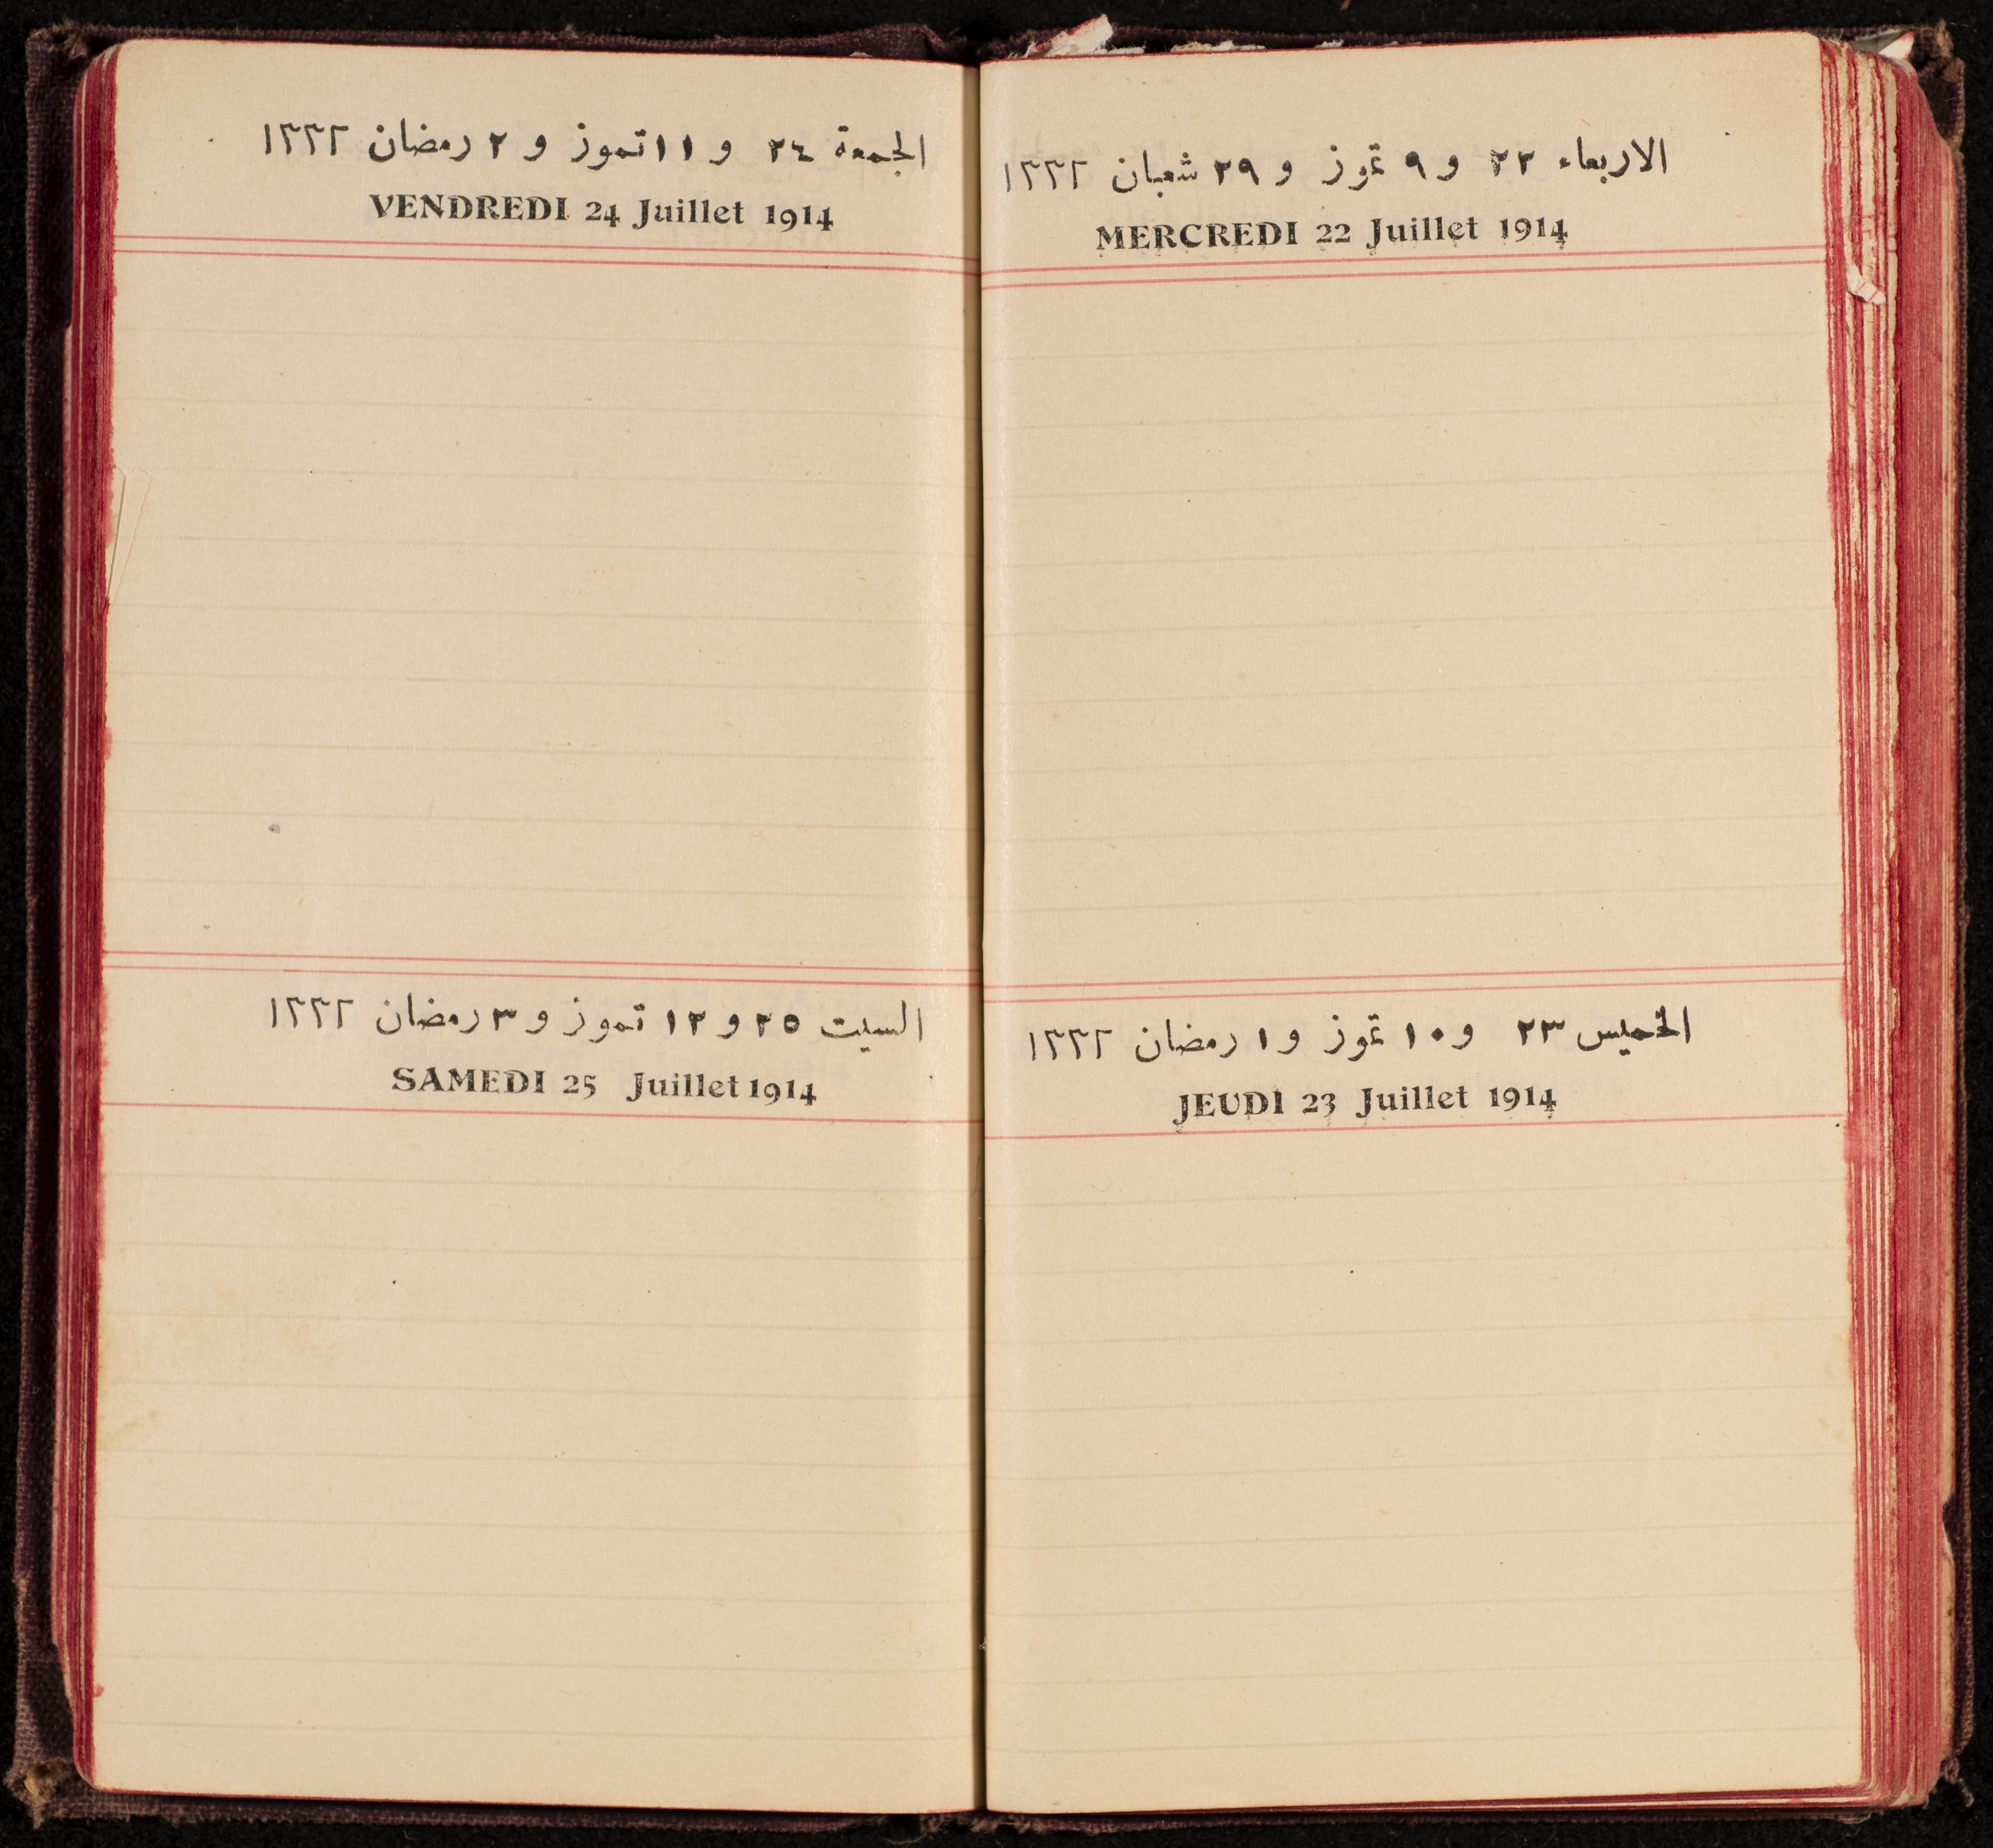 الاربعاء ٢٢ و ٩ تموز و ٢٩ شعبان ١٣٣٢
MERCREDI 22 Juillet 1914
الخميس ٢٣ و ١٠ تموز و ١ رمضان ١٣٣٢
JEUDI 23 Juillet 1914
الجمعة ٢٤ و ١١ تموز و ٢ رمضان ١٣٣٢
VENDREDI 24 Juillet 1914
السبت ٢٥ و ١٢ تموز و ٣ رمضان ١٣٣٢
SAMEDI 25 Juillet 1914